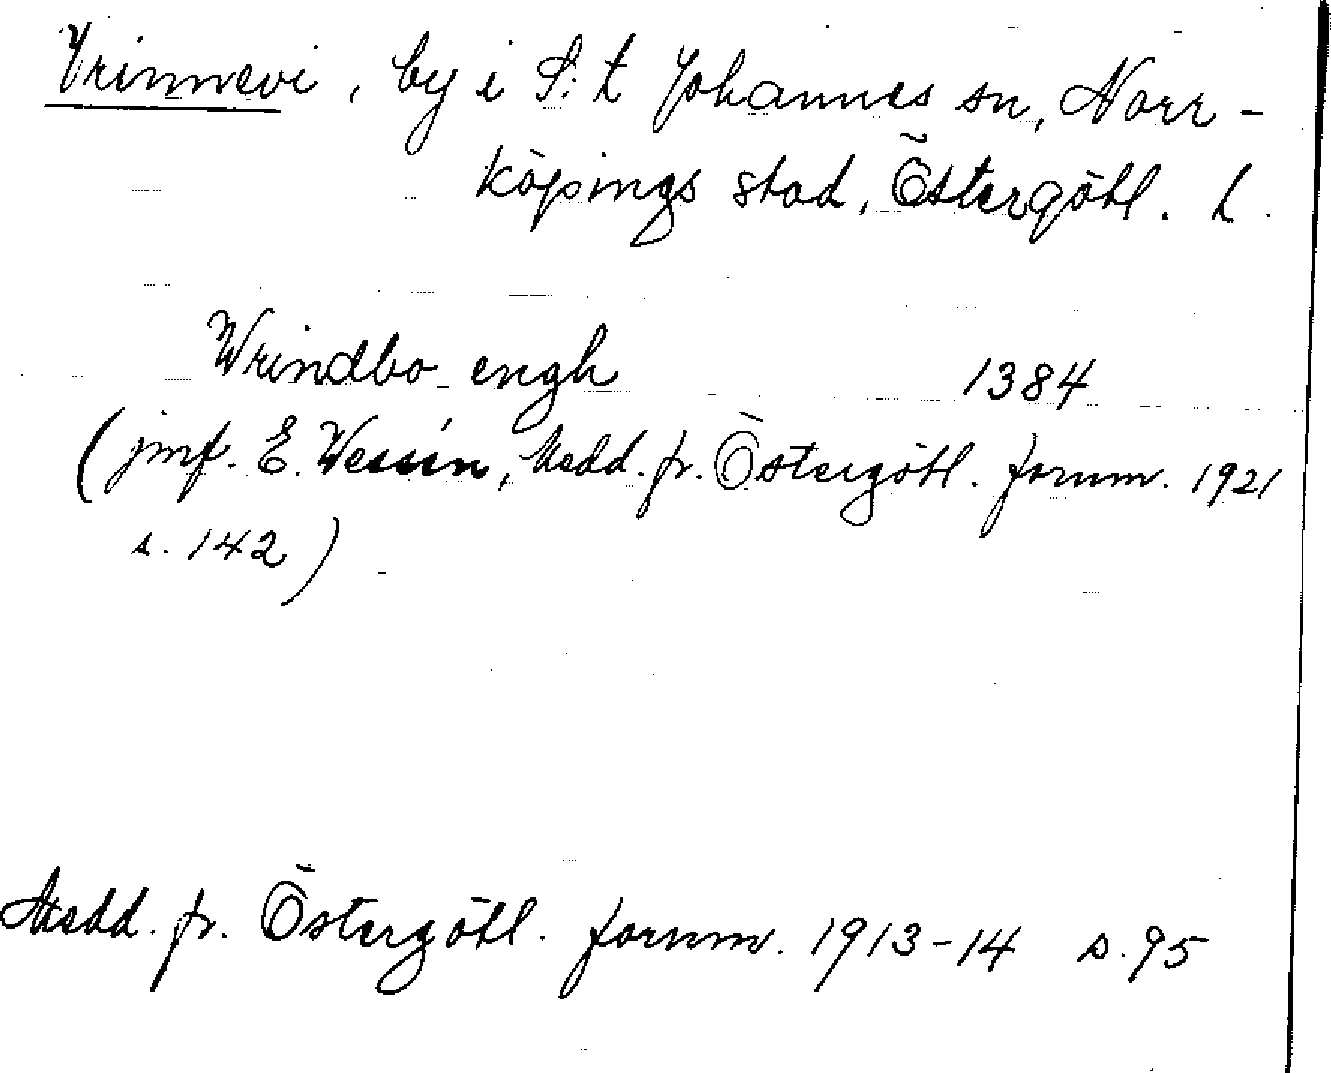 Vrinnevi, by i S:t Johannes sn, Norr-
köpings stad, Östergötl. l.
Wrindbo engh 1384
(jmf. E. Wessén, Medd. fr. Östergötl. fornm. 1921
s. 142)
Medd. fr. Östergötl. fornm. 1913-14 s. 95